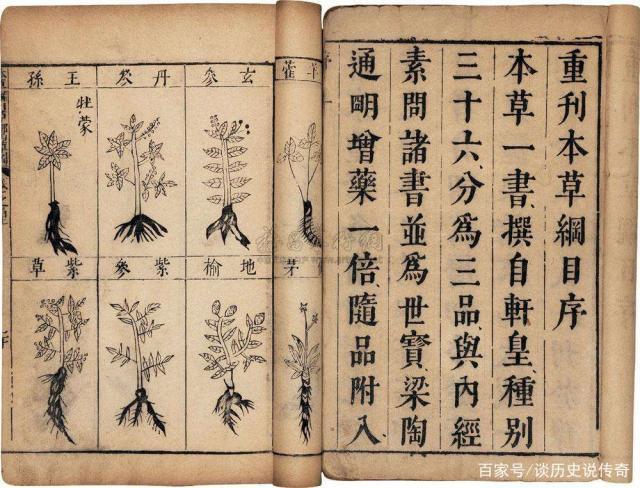 重刊本草綱目序
本草一書撰自軒皇種別
三十六分爲三品與內經
素問諸書並爲世寶梁陶
通明增藥一倍隨品附入
羊藿
玄參
丹參
王孫
牡蒙
地榆
紫參
紫草
百家号/谈历史说传奇